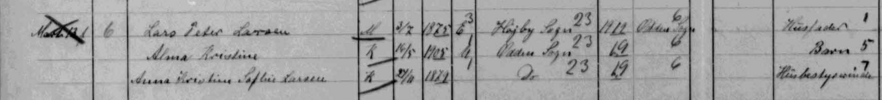 6 Lars Peter Larsen M 3/7 1875 E 3 Højby Sogn 23 1912 Odden Sogn 6 Husfader 1
Alma Kristine K 14/5 1905 U 1 Odden Sogn 23 19 6 Barn 5
Anna Kristine Sofie Larsen K 1 Do 23 19 6 Husbestyerinde 7